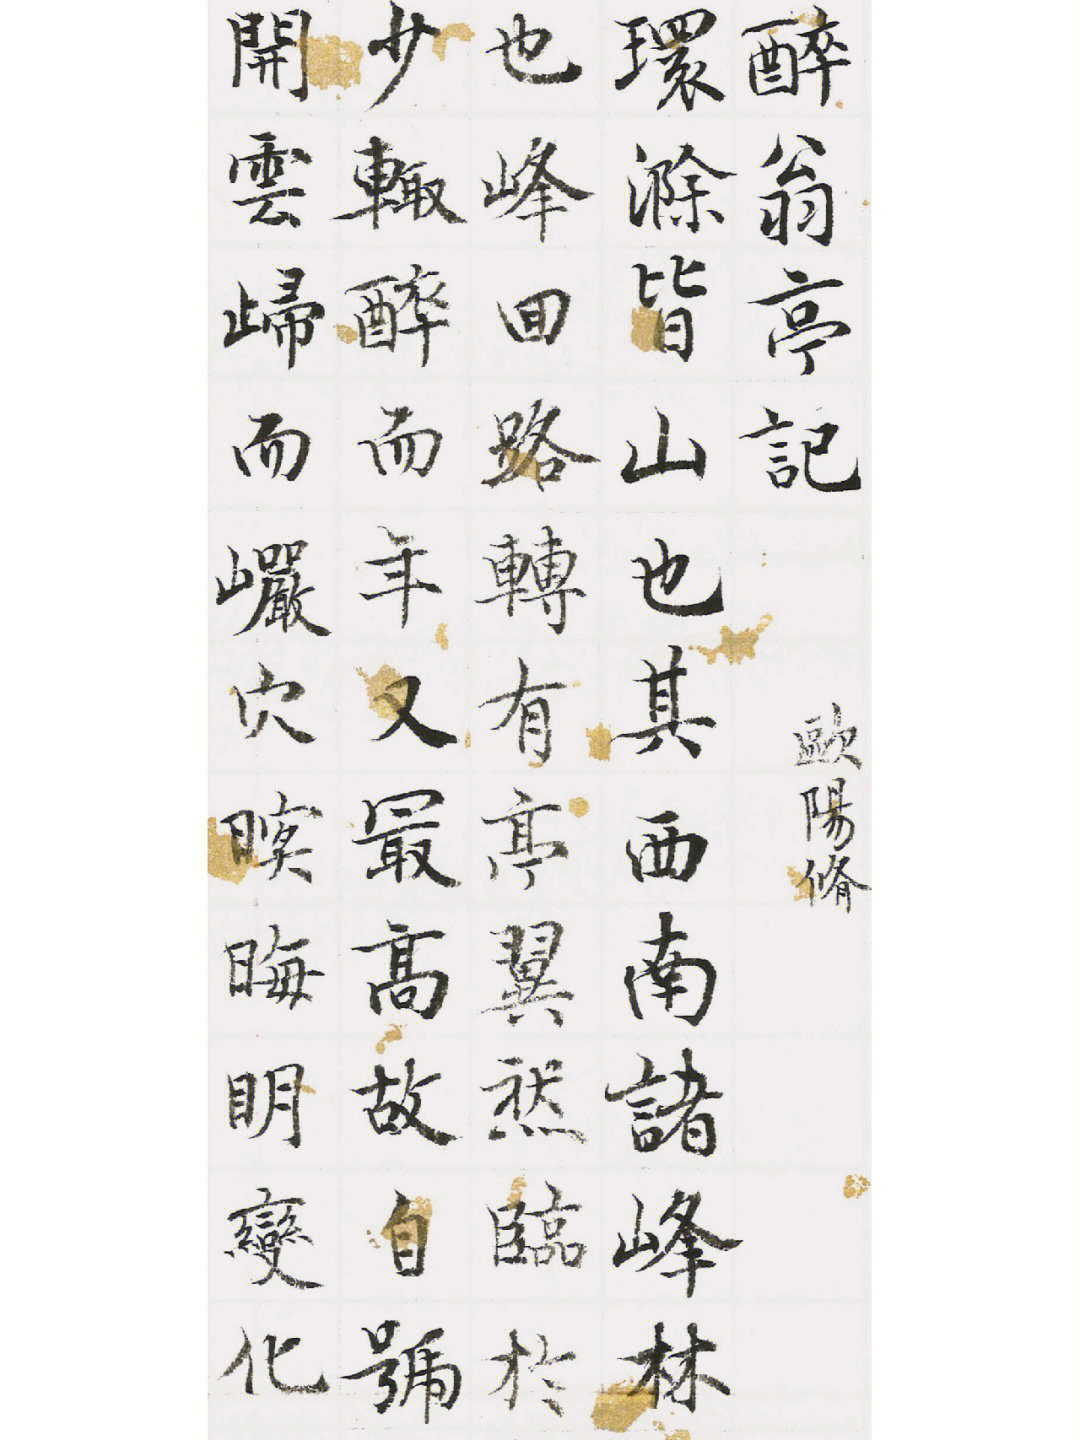 醉翁亭記
歐陽脩
環滁皆山也其西南諸峰林
也峰回路轉有亭翼然臨於
少輙醉而年又最高故自號
開雲歸而巗穴暝晦明變化